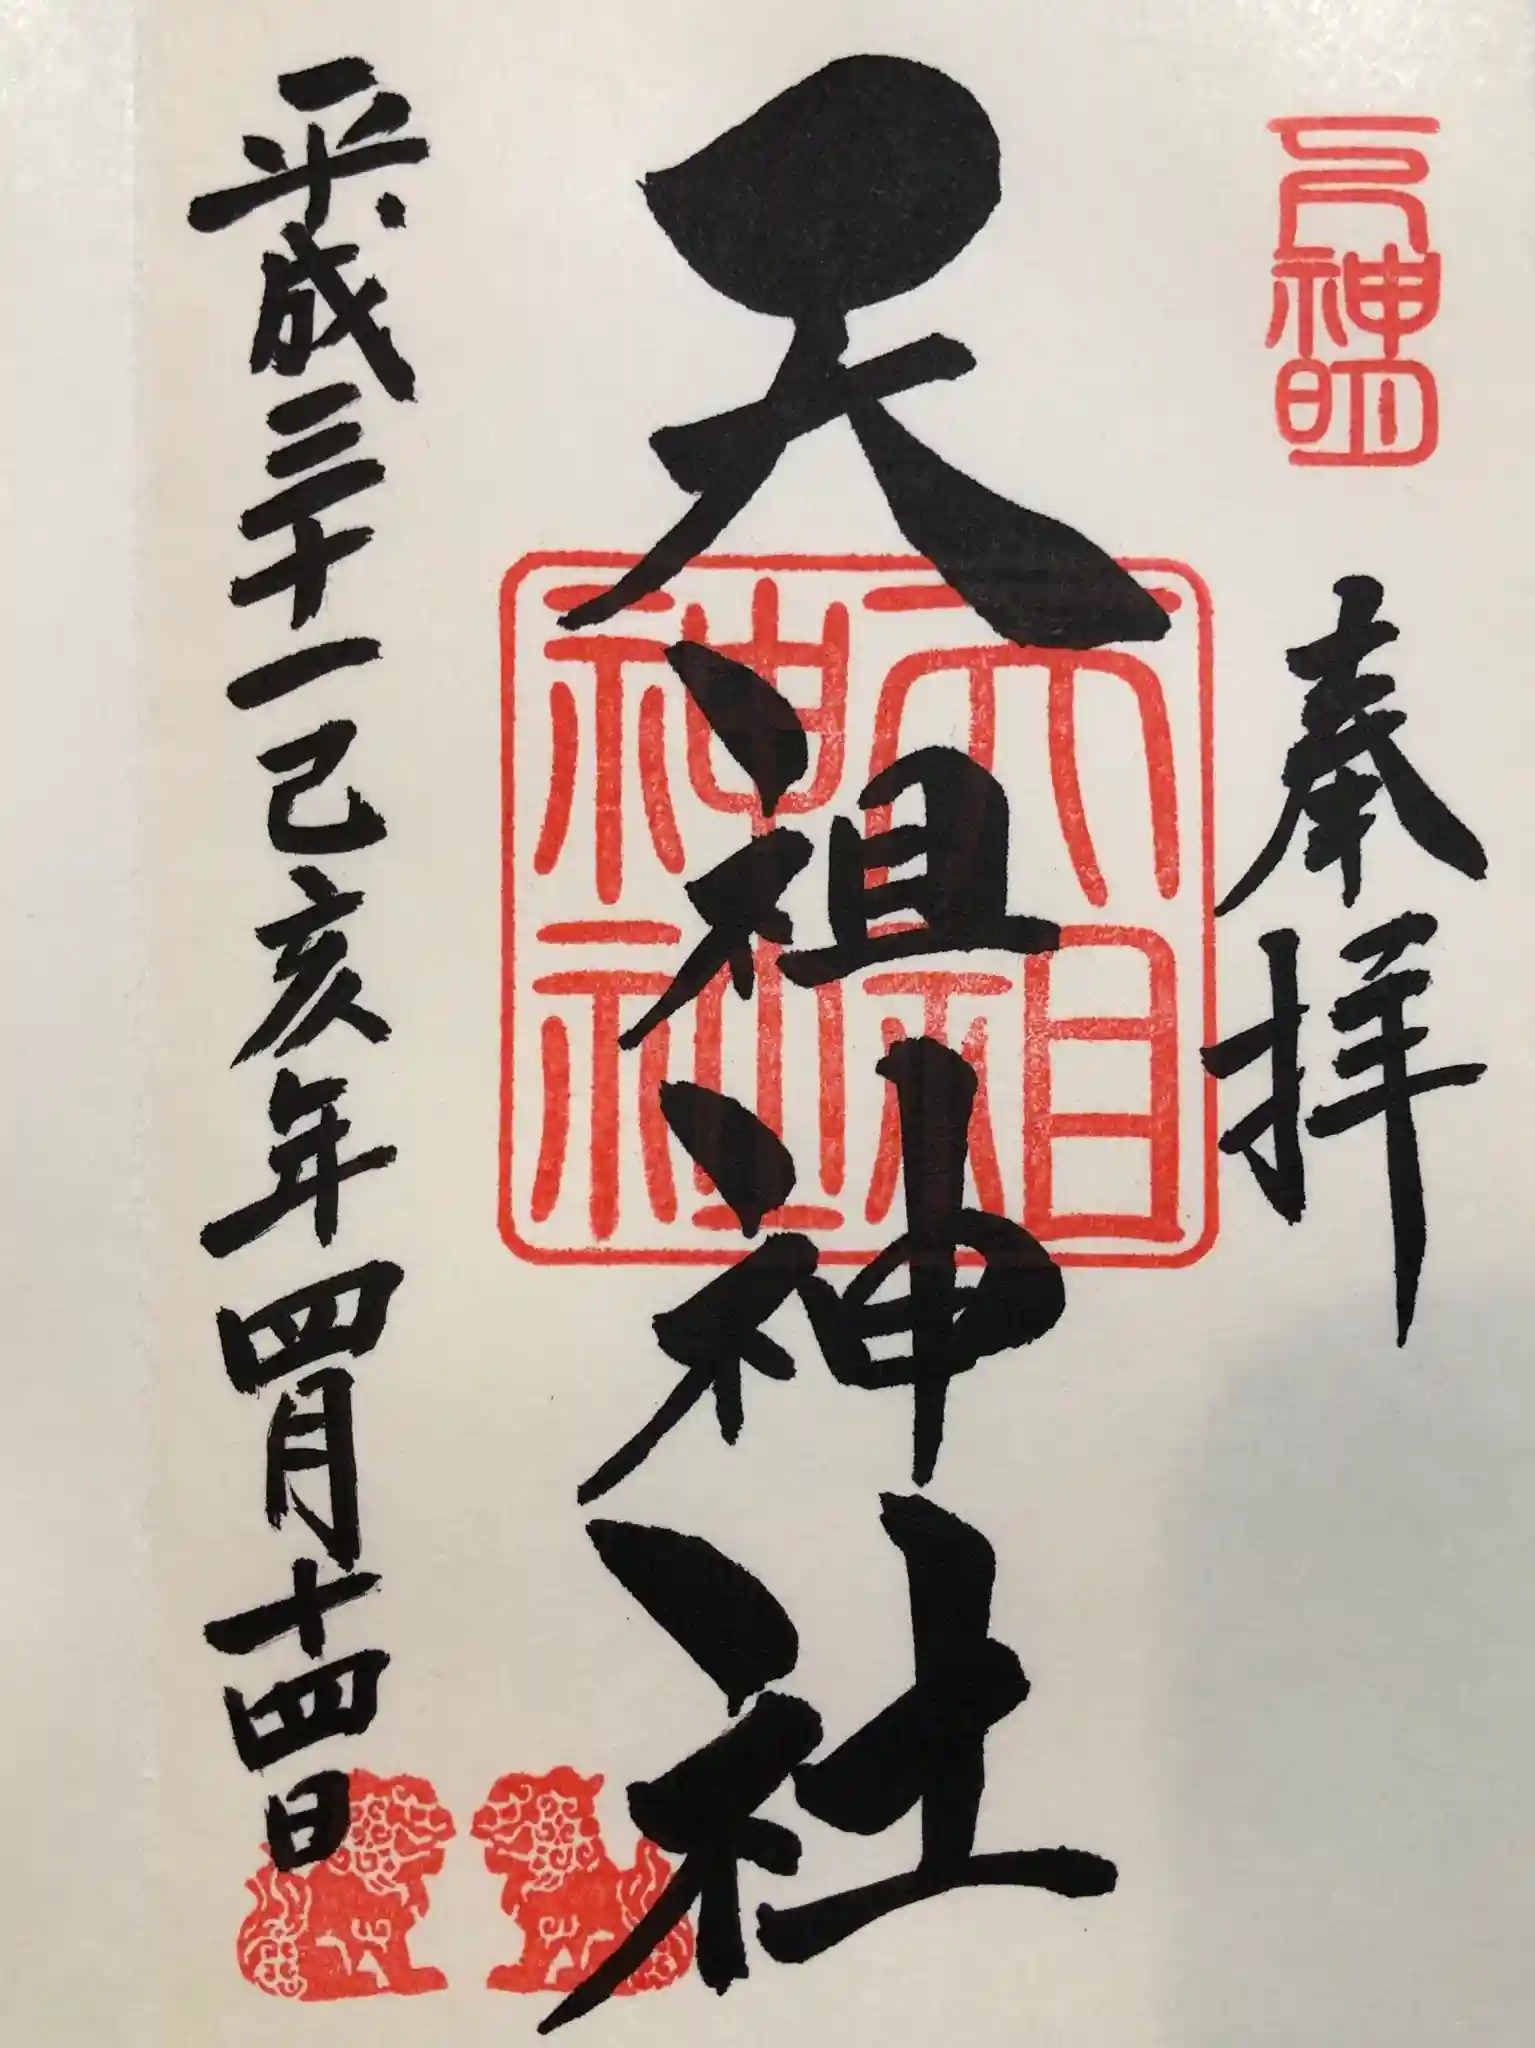 下神明
奉拝
天祖神社
天祖神社
平成三十一己亥年四月十四日